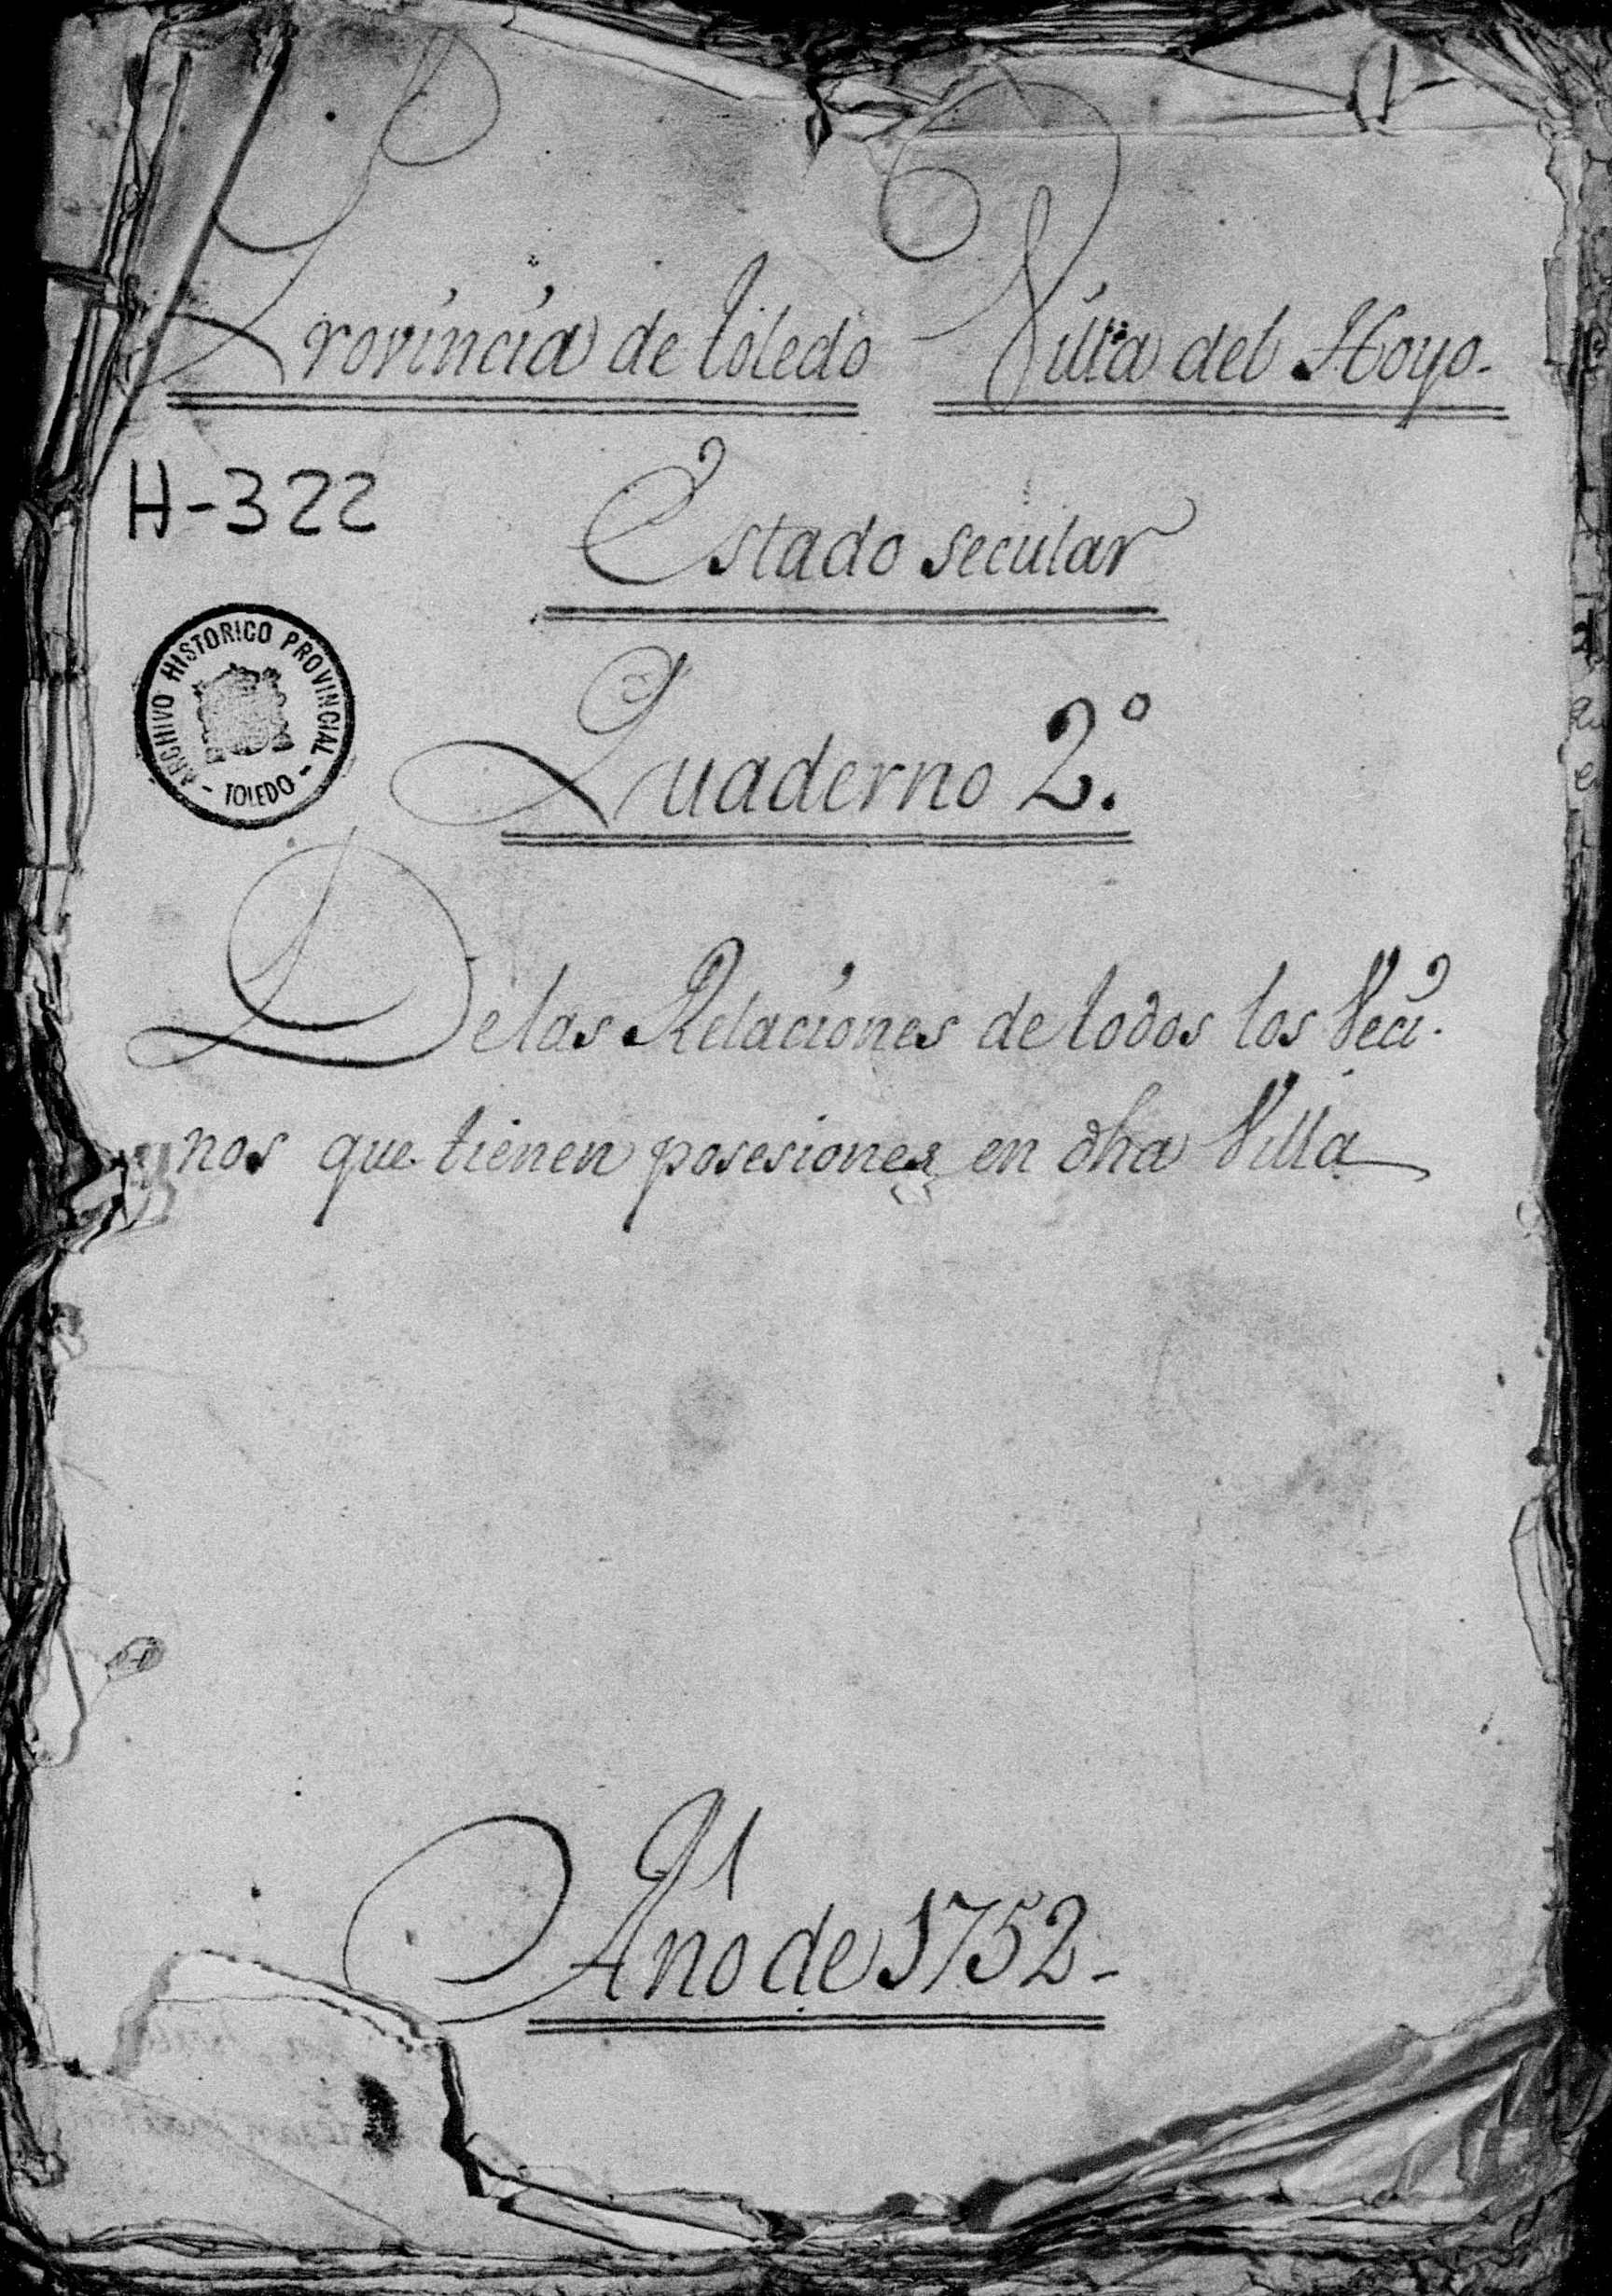 Provincia de toledo Villa del Hoyo.
H-322
Estado secular
ARCHIVO HISTORICO PROVINCIAL
- TOLEDO -
Quaderno 2.º
De las Relaciones de todos los Veci-
nos que tienen posesiones en dha Villa
Año de 1752-